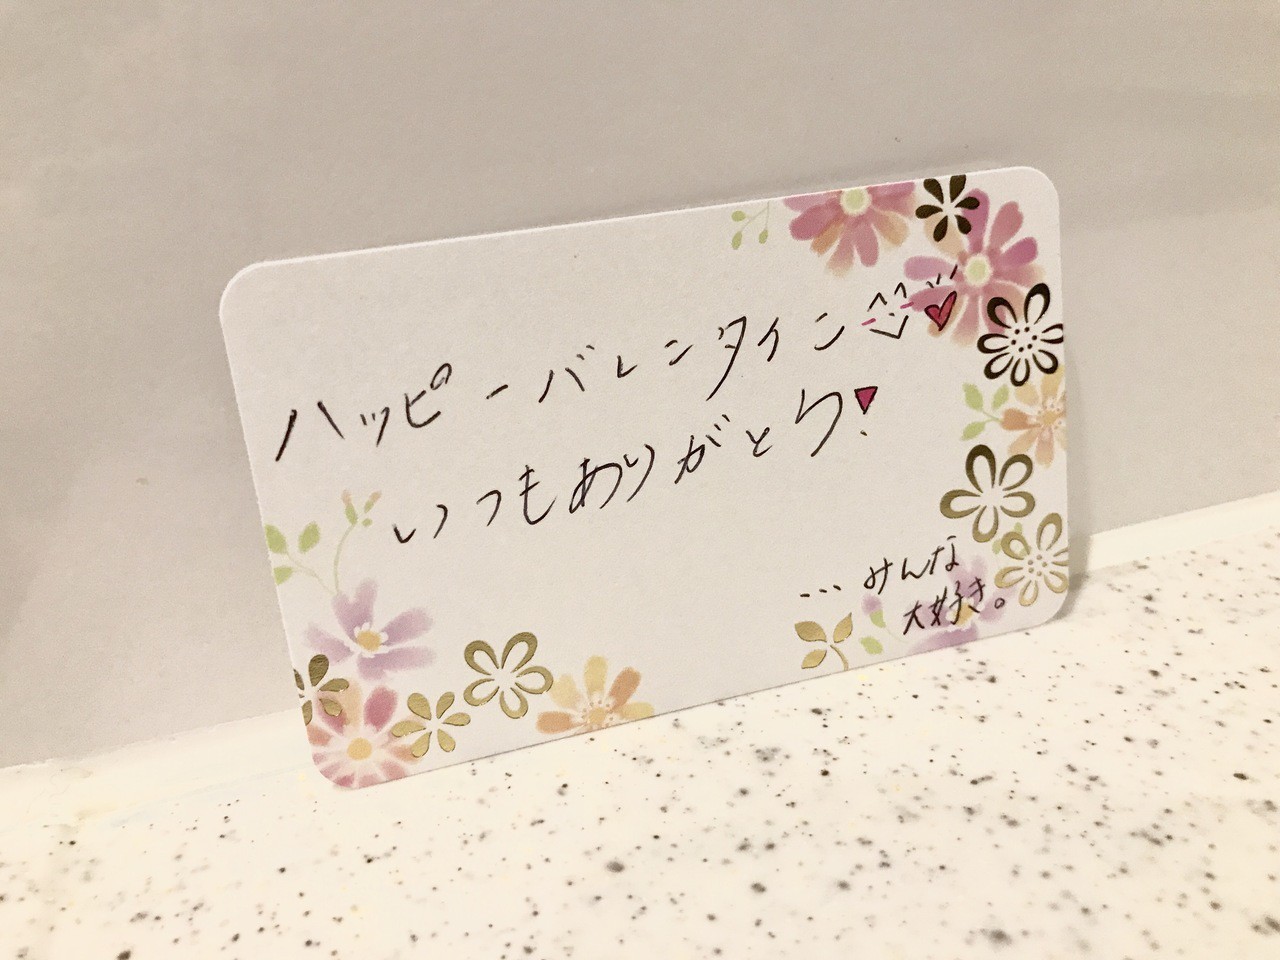 ハッピーバレンタイン
いつもありがとう!
...みんな
大好き。